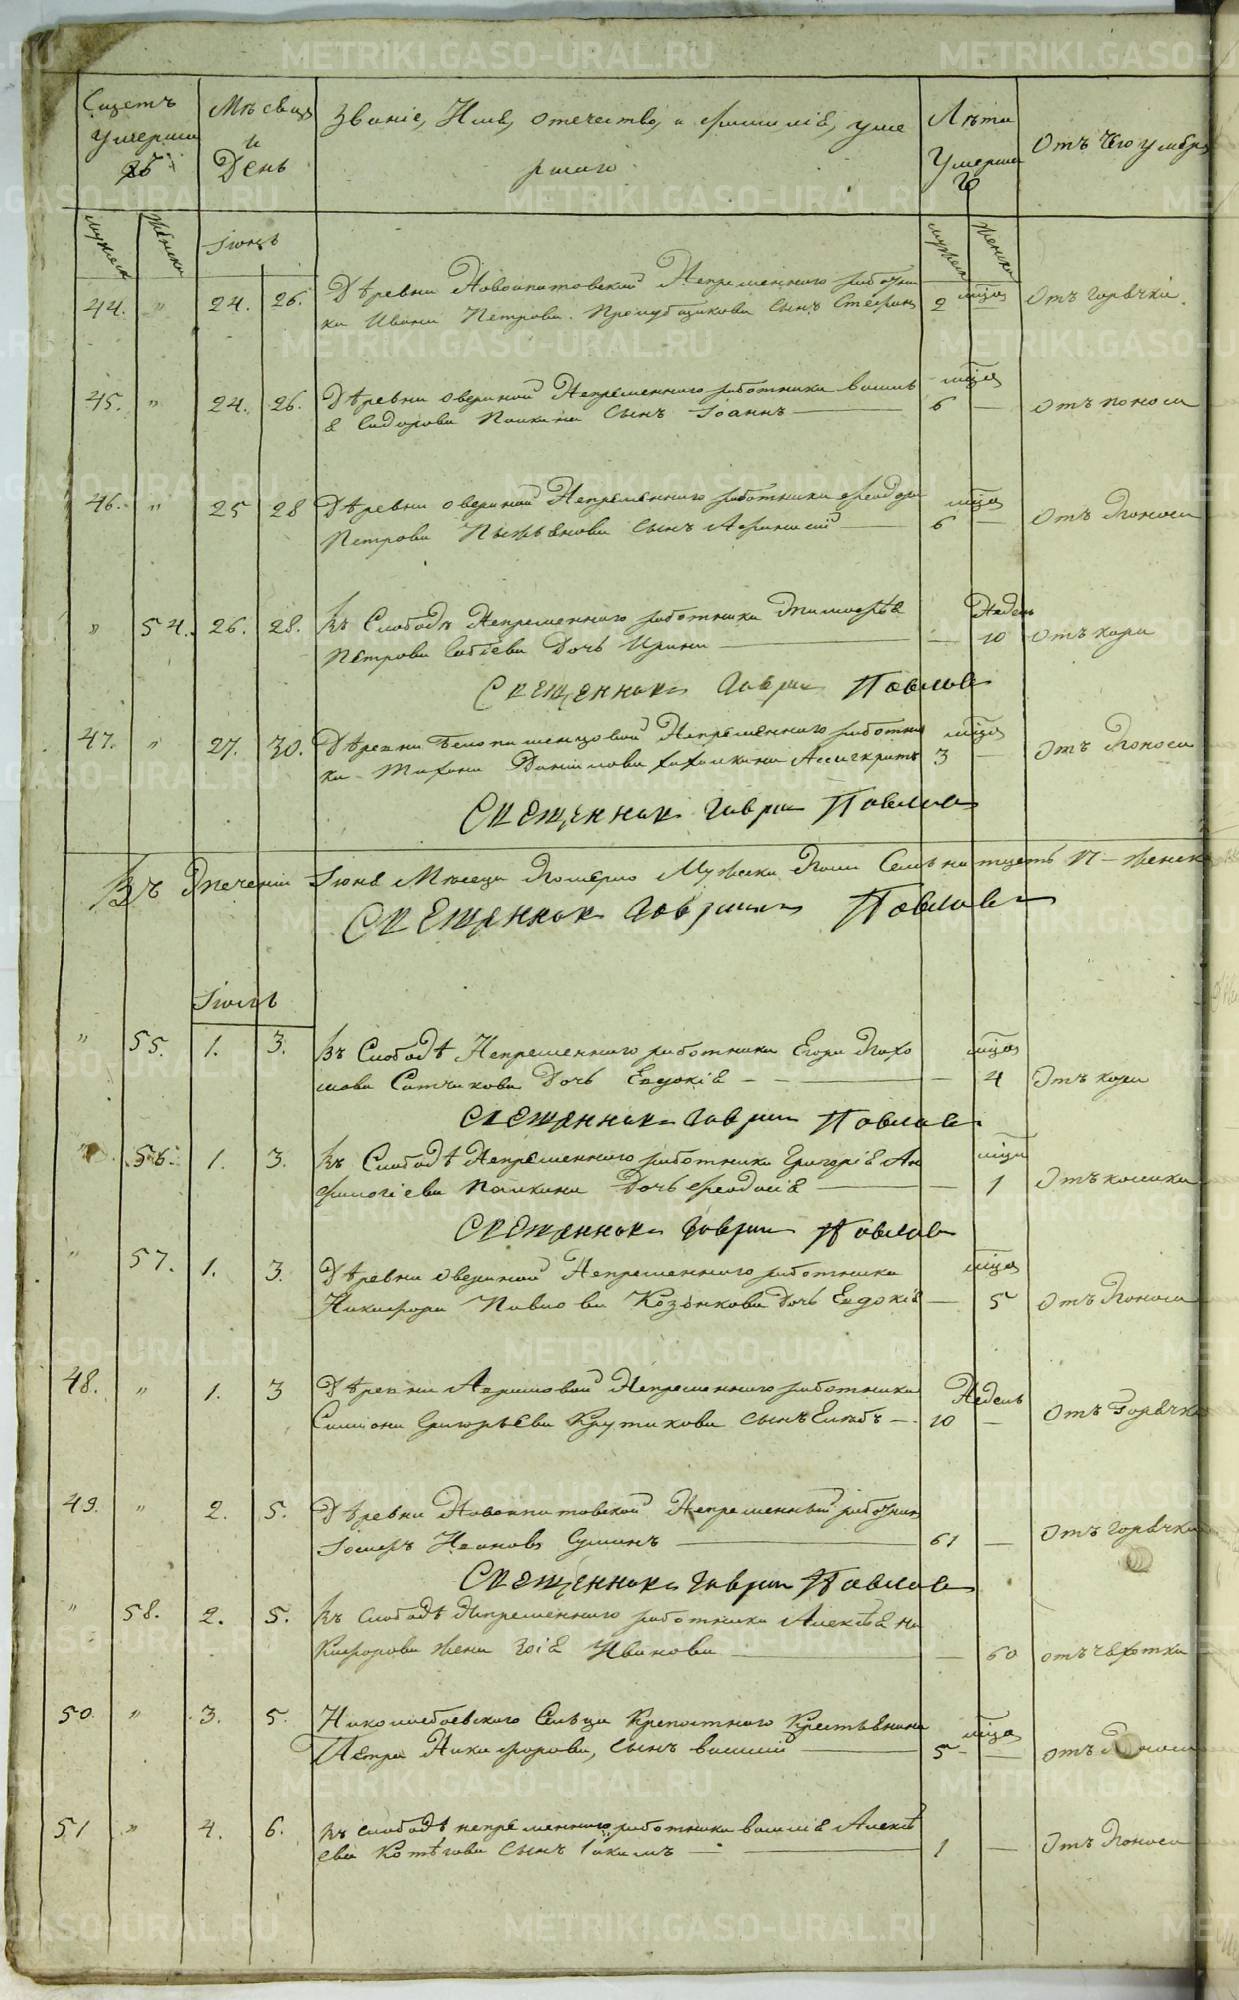 Щетъ умершихъ
Мѣсяцъ и День
Званіе, Имя, отечество, и фамилія, умершаго
Лѣта Умершаго
Отъ Чего умбръ
мужеск женска
Іюнь
мужеск женска
44. " 24. 26. Дѣревни Новоипатовской Непременнаго работни
ка Ивана Петрова сынъ Стефанъ 2 мца Отъ горячки
45. " 24. 26. Дѣревни Овериной Непременнаго работника Василь
я Сидорова Палкина Сынъ Іоаннъ — мца 6 — отъ поноса
46. " 25 28 Дѣревни Овериной Непременнаго работника Феодора
Петрова Сынъ Афанасій — мца 6 — отъ Поноса
" 54. 26. 28. Въ Слободѣ Непременнаго работника Тимофѣя
Петрова Дочь Ирина — Недель 10 отъ кори
Священникъ Гаврилъ Павловъ
47. " 27. 30. Дѣревни Непременнаго работни
ка Тихона Данилова Асигкритъ мца 3 — отъ Поноса
Священникъ Гаврилъ Павловъ
Въ Теченіи Іюня Мѣсяца Померло Мужеска Пола 17 – женска
Священникъ Гаврилъ Павловъ
Іюль
" 55. 1. 3. Въ Слободѣ Непременнаго работника Егора Пахо
мова Ситчикова Дочь Евдокія — мца 4 Отъ кори
Священникъ Гаврилъ Павловъ
" 56. 1. 3. Въ Слободѣ Непременнаго работника Григорія Ан
финогіева Палкина Дочь Феодосія — мца 1 Отъ
Священникъ Гаврилъ Павловъ
" 57. 1. 3. Дѣревни Овериной Непременнаго работника
Никифора Павлова Козонкова Дочь Евдокія — мца 5 отъ Поноса
48. " 1. 3 Дѣревни Абрамовой Непременнаго работника
Симіона Григорьева Крутикова сынъ Глѣбъ — Недель 10 — Отъ Горячки
49. " 2. 5. Дѣревни Новоипатовской Непременный работникъ
Іосифъ Ивановъ — 61 — Отъ горячки
Священникъ Гаврилъ Павловъ
" 58. 2. 5. Въ слободѣ Непременнаго работника Алексѣя Ни
кифорова жена Зоія Иванова — 60 отъ чахотки
50. " 3. 5. Сельца Крепостнаго Крестьянина
Петра Никифорова, сынъ Василій — мца 5 — отъ Поноса
51 " 4. 6. Въ слободѣ непременнаго работника Василія Алексѣ
ева Котѣгова Сынъ Іакимъ — 1 — Отъ Поноса
METRIKI.GASO-URAL.RU